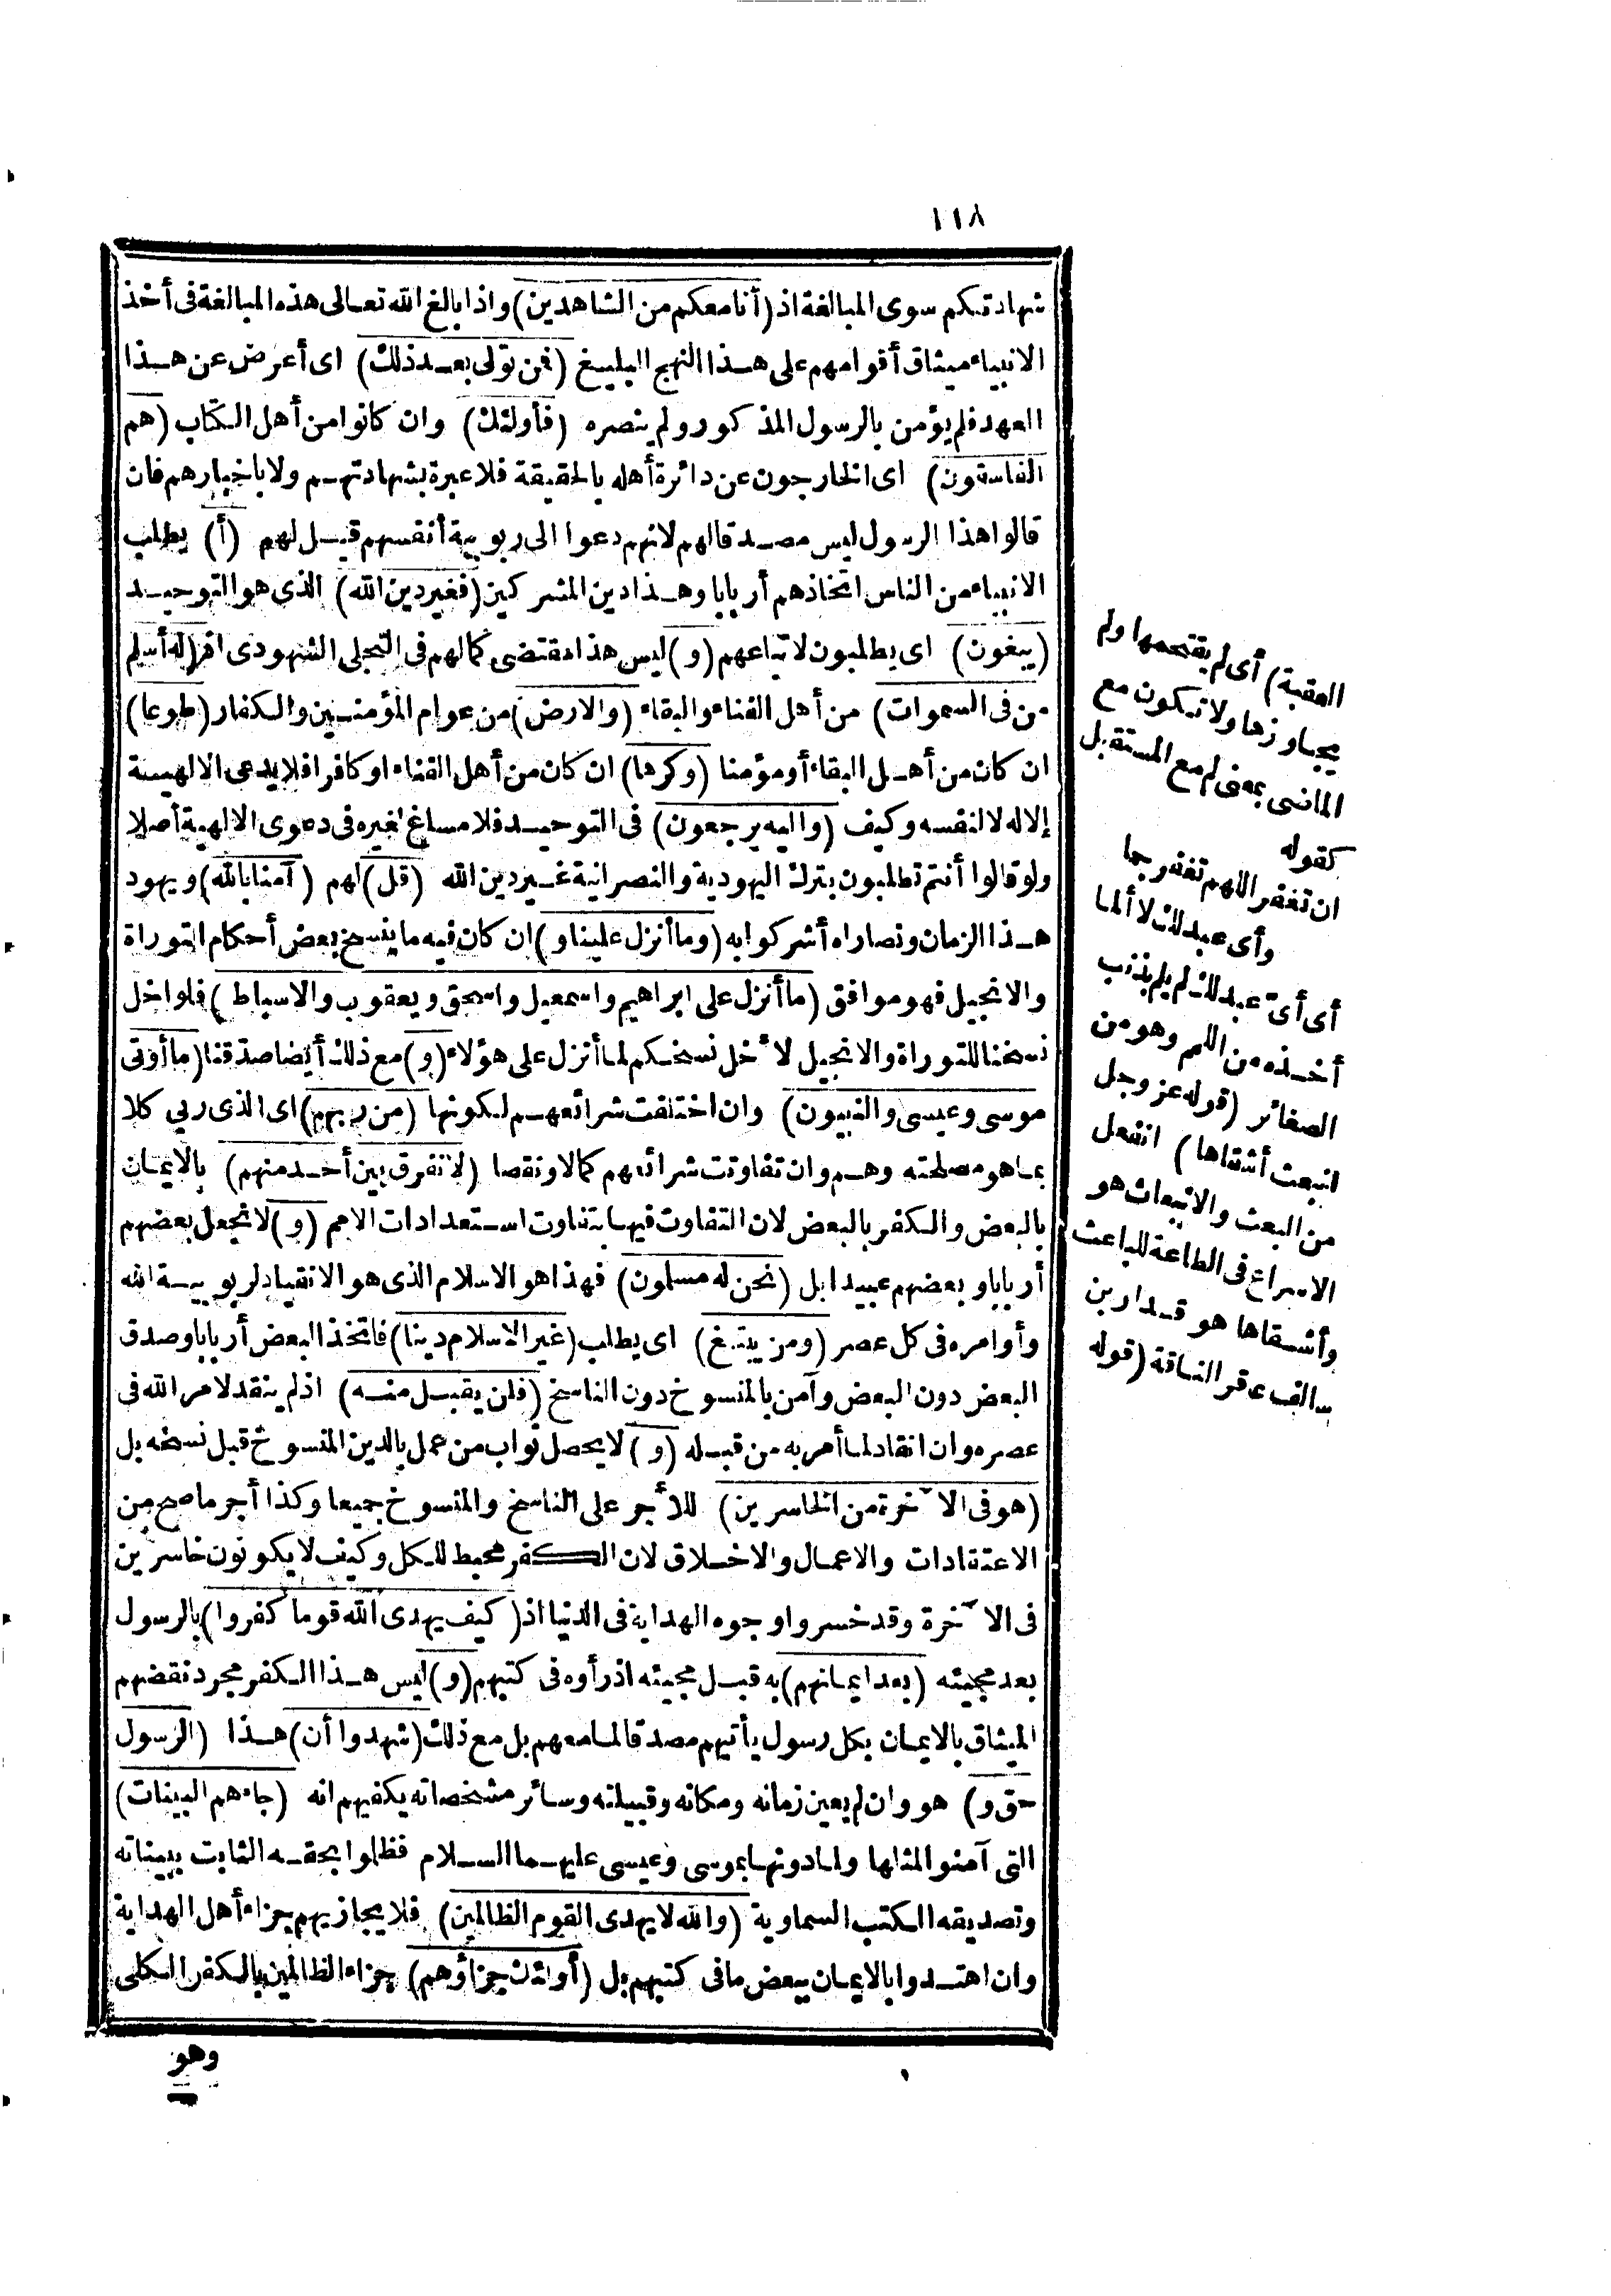 ١١٨
شهادتكم سوى المبالغة اذ (أنا معكم من الشاهدين) واذا بالغ الله تعالى هذه المبالغة فى أخذ
الانبياء ميثاق أقوامهم على هذا النهج البليغ (فمن تولى بعد ذلك) اى أعرض عن هذا
العهد فلم يؤمن بالرسول المذكور ولم ينصره (فأولئك) وان كانوا من أهل الكتاب (هم
الفاسقون) اى الخارجون عن دائرة أهله بالحقيقة فلا عبرة بشهادتهم ولا باخبارهم فان
قالوا هذا الرسول ليس مصدقا لهم لانهم دعوا الى ربوبية أنفسهم قيل لهم (أ) يطلب
الانبياء من الناس اتخاذهم أربابا وهذا دين المشركين (فغير دين الله) الذى هو التوحيد
(يبغون) اى يطلبون لاتباعهم (و) ليس هذا مقتضى كمالهم فى التجلى الشهودى اذ (له أسلم
من فى السموات) من أهل الفناء والبقاء (والارض) من عوام المؤمنين والكفار (طوعا)
ان كان من أهل البقاء أو مؤمنا (وكرها) ان كان من أهل الفناء او كافرا فلا يدعى الالهية
إلا له لا لنفسه وكيف (واليه يرجعون) فى التوحيد فلا مساغ لغيره فى دعوى الالهية أصلا
ولو قالوا أنتم تطلبون بترك اليهودية والنصرانية غير دين الله (قل) لهم (آمنا بالله) ويهود
هذا الزمان ونصاراه أشركوا به (وما أنزل علينا و) ان كان فيه ما ينسخ بعض أحكام التوراة
والانجيل فهو موافق (ما أنزل على ابراهيم واسمعيل واسحق ويعقوب والاسباط) فلو اخل
نسخنا للتوراة والانجيل لأخل نسخكم لما أنزل على هؤلاء (و) مع ذلك أيضا صدقنا (ما أوتى
موسى وعيسى والنبيون) وان اختلفت شرائعهم لكونها (من ربهم) اى الذى ربى كلا
بما هو مصلحته وهم وان تفاوتت شرائعهم كمالا ونقصا (لا نفرق بين أحد منهم) بالايمان
بالبعض والكفر بالبعض لان التفاوت فيها بتفاوت استعدادات الامم (و) لا نجعل بعضهم
أربابا وبعضهم عبيدا بل (نحن له مسلمون) فهذا هو الاسلام الذى هو الانقياد لربوبية الله
وأوامره فى كل عصر (ومن يبتغ) اى يطلب (غير الاسلام دينا) فاتخذ البعض أربابا وصدق
البعض دون البعض وآمن بالمنسوخ دون الناسخ (فلن يقبل منه) اذ لم ينقد لامر الله فى
عصره وان انقاد لما أمر به من قبله (و) لا يحصل ثواب من عمل بالدين المنسوخ قبل نسخه بل
(هو فى الآخرة من الخاسرين) للأجر على الناسخ والمنسوخ جميعا وكذا أجر ما صح من
الاعتقادات والاعمال والاخلاق لان الكفر محيط للكل وكيف لا يكونون خاسرين
فى الآخرة وقد خسروا وجوه الهداية فى الدنيا اذ (كيف يهدى الله قوما كفروا) بالرسول
بعد مجيئه (بعد ايمانهم) به قبل مجيئه اذ رأوه فى كتبهم (و) ليس هذا الكفر مجرد نقضهم
الميثاق بالايمان بكل رسول يأتيهم مصدقا لما معهم بل مع ذلك (شهدوا أن) هذا (الرسول
حق و) هو وان لم يعين زمانه ومكانه وقبيلته وسائر مشخصاته يكفيهم انه (جاءهم البينات)
التى آمنوا لمثلها ولما دونها بموسى وعيسى عليهما السلام فظلموا بحقه الثابت ببيناته
وتصديقه الكتب السماوية (والله لا يهدى القوم الظالمين) فلا يجازيهم جزاء أهل الهداية
وان اهتدوا بالايمان ببعض ما فى كتبهم بل (أولئك جزاؤهم) جزاء الظالمين بالكفر الكلى
وهو
العقبة) أى لم يقتحمها ولم
يجاوزها ولا تكون مع
الماضى بمعنى لم مع المستقبل
كقوله
ان تغفر اللهم تغفر جما
وأى عبد لك لا ألما
أى أىّ عبد لك لم يلم بذنب
أخذه من اللمم وهو من
الصغائر (قوله عز وجل
انبعث أشقاها) انفعل
من البعث والانبعاث هو
الاسراع فى الطاعة للباعث
وأشقاها هو قدار بن
سالف عاقر الناقة (قوله